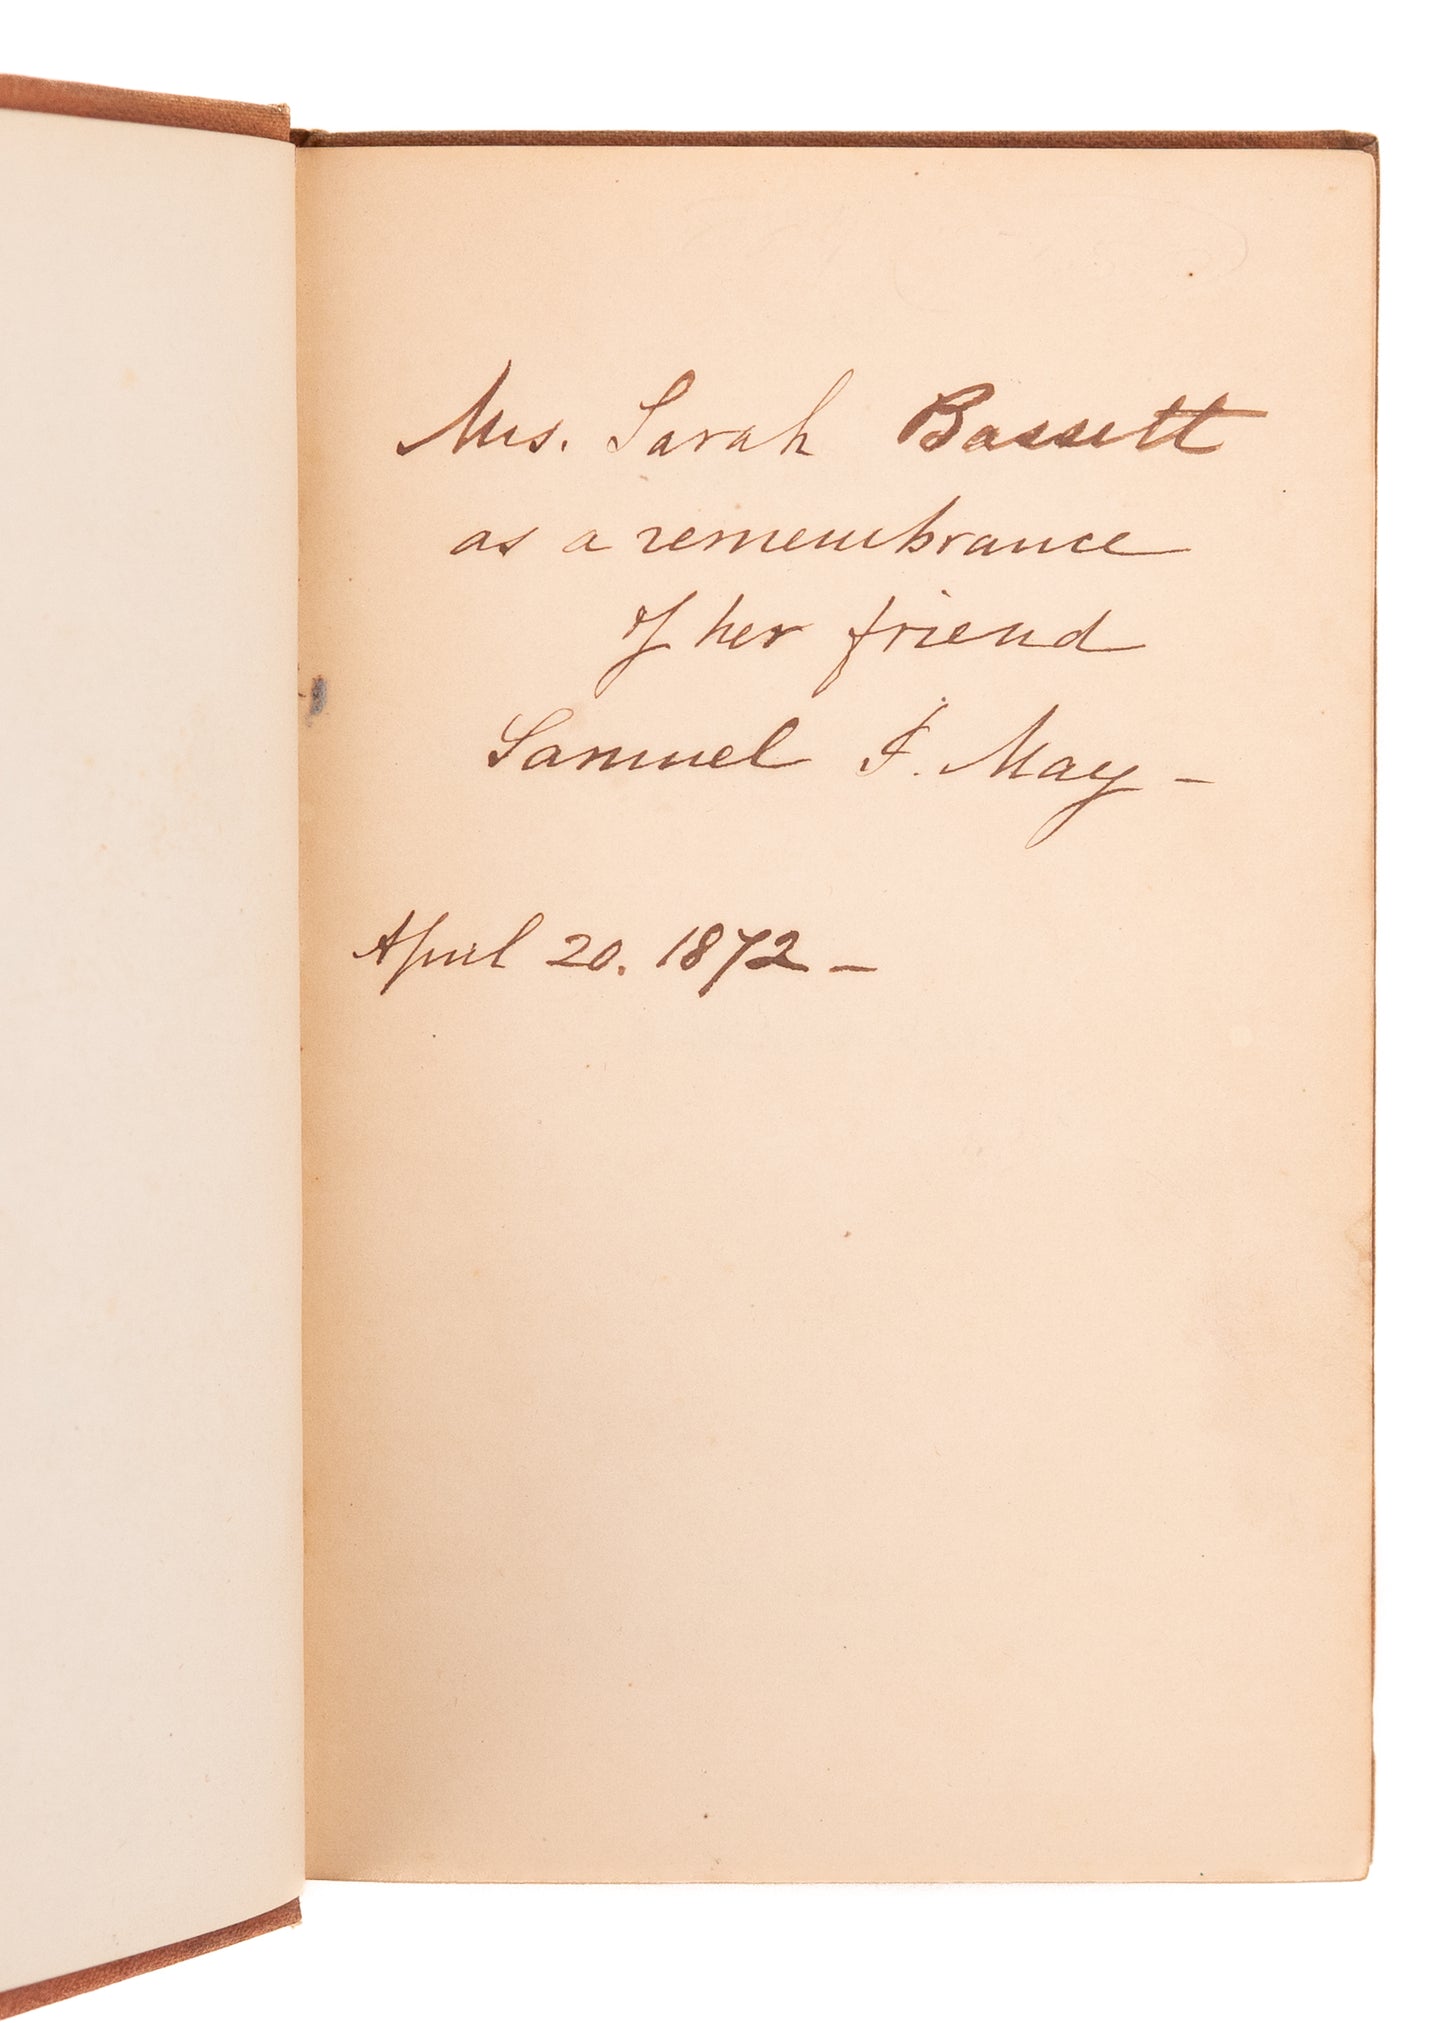 Mrs. Sarah Bassett
as a remembrance
of her friend
Samuel J. May -
April 20. 1872 -